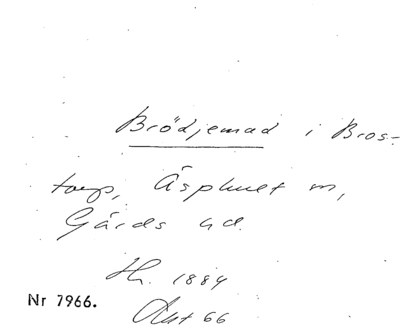 Brödjemad i Bros-
torp, Äsphult sn,
Gärds hd.
Hr. 1884
Nr 7966.
Akt 66